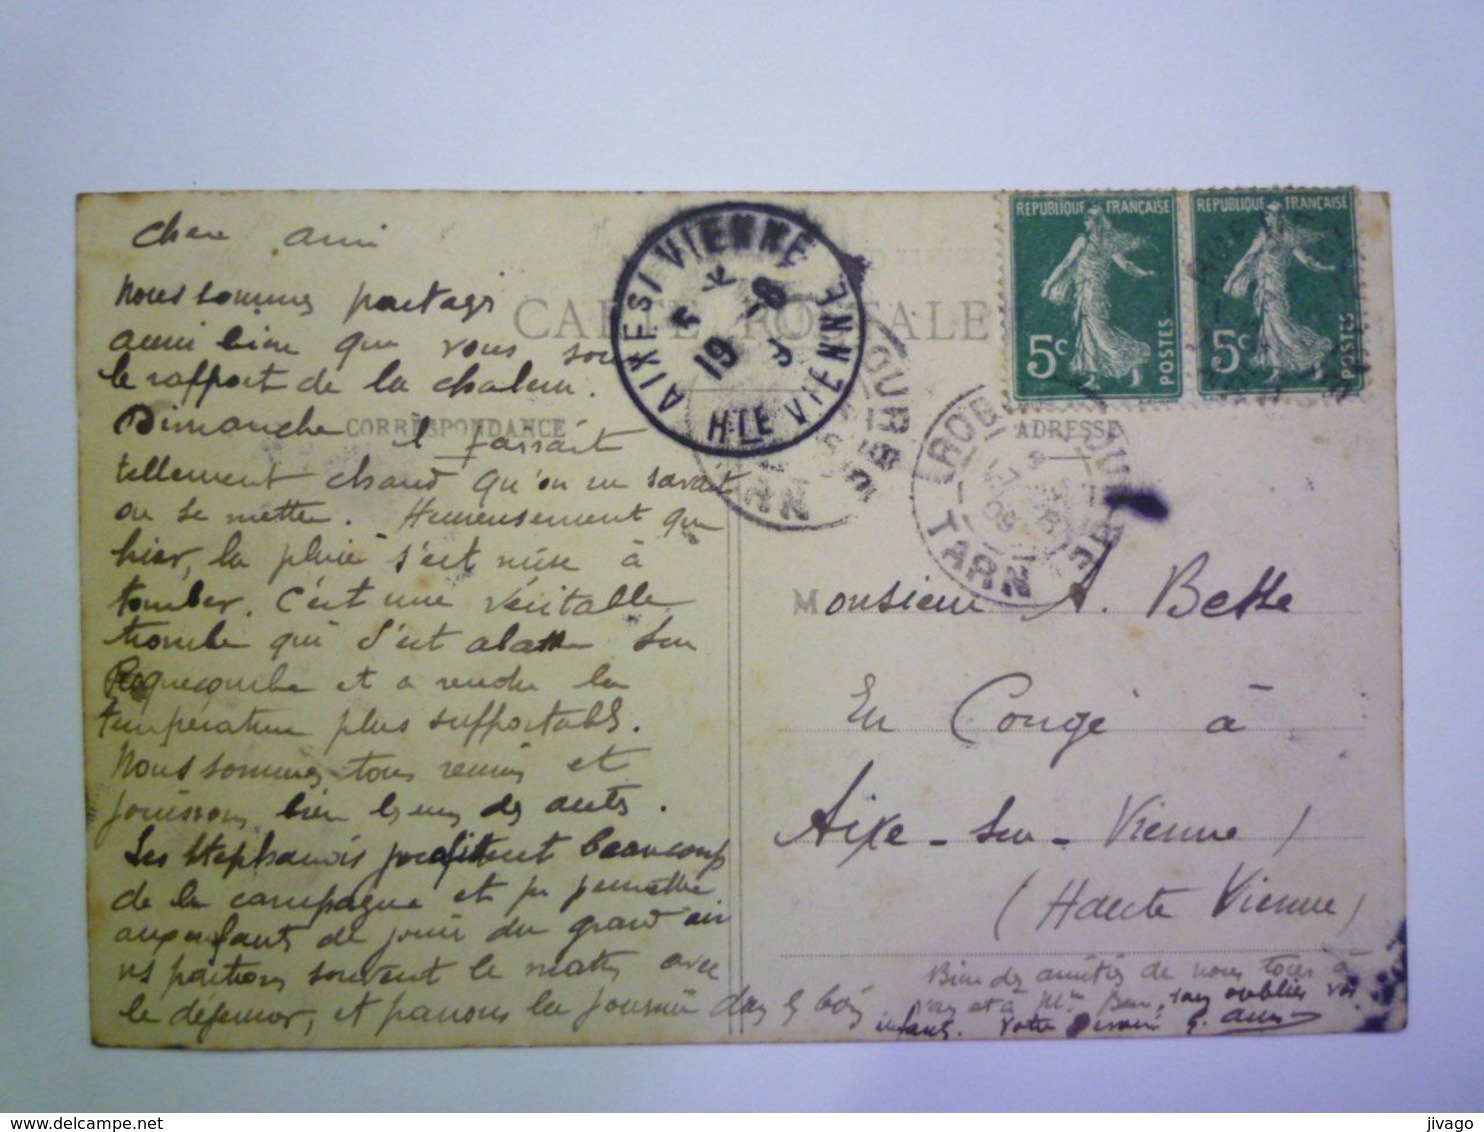 Cher ami
Nous sommes partagés
aussi bien que vous sous
le rapport de la chaleur.
Dimanche il faisait
tellement chaud qu'on ne savait
où se mettre. Heureusement que
hier, la pluie s'est mise à
tomber. C'est une véritable
trombe qui s'est abattue sur
Roquecourbe et a rendu la
température plus supportable.
Nous sommes tous réunis et
jouissons bien les uns des autres.
Les Stephanois profitent beaucoup
de la campagne et pr permettre
aux enfants de jouir du grand air
ns partons souvent le matin avec
le déjeuner, et passons la journée dans les bois
CARTE POSTALE
CORRESPONDANCE
ADRESSE
AIXE-S-VIENNE
19 -8
HTE VIENNE
TARN
09
RÉPUBLIQUE FRANÇAISE
5c
POSTES
RÉPUBLIQUE FRANÇAISE
5c
POSTES
Monsieur A. Bette
En Congé à
Aixe-sur-Vienne
(Haute Vienne)
Bien des amitiés de nous tous à
vous et à Mme Bette, sans oublier vos
enfants. Votre dévoué
delcampe.net
jivago